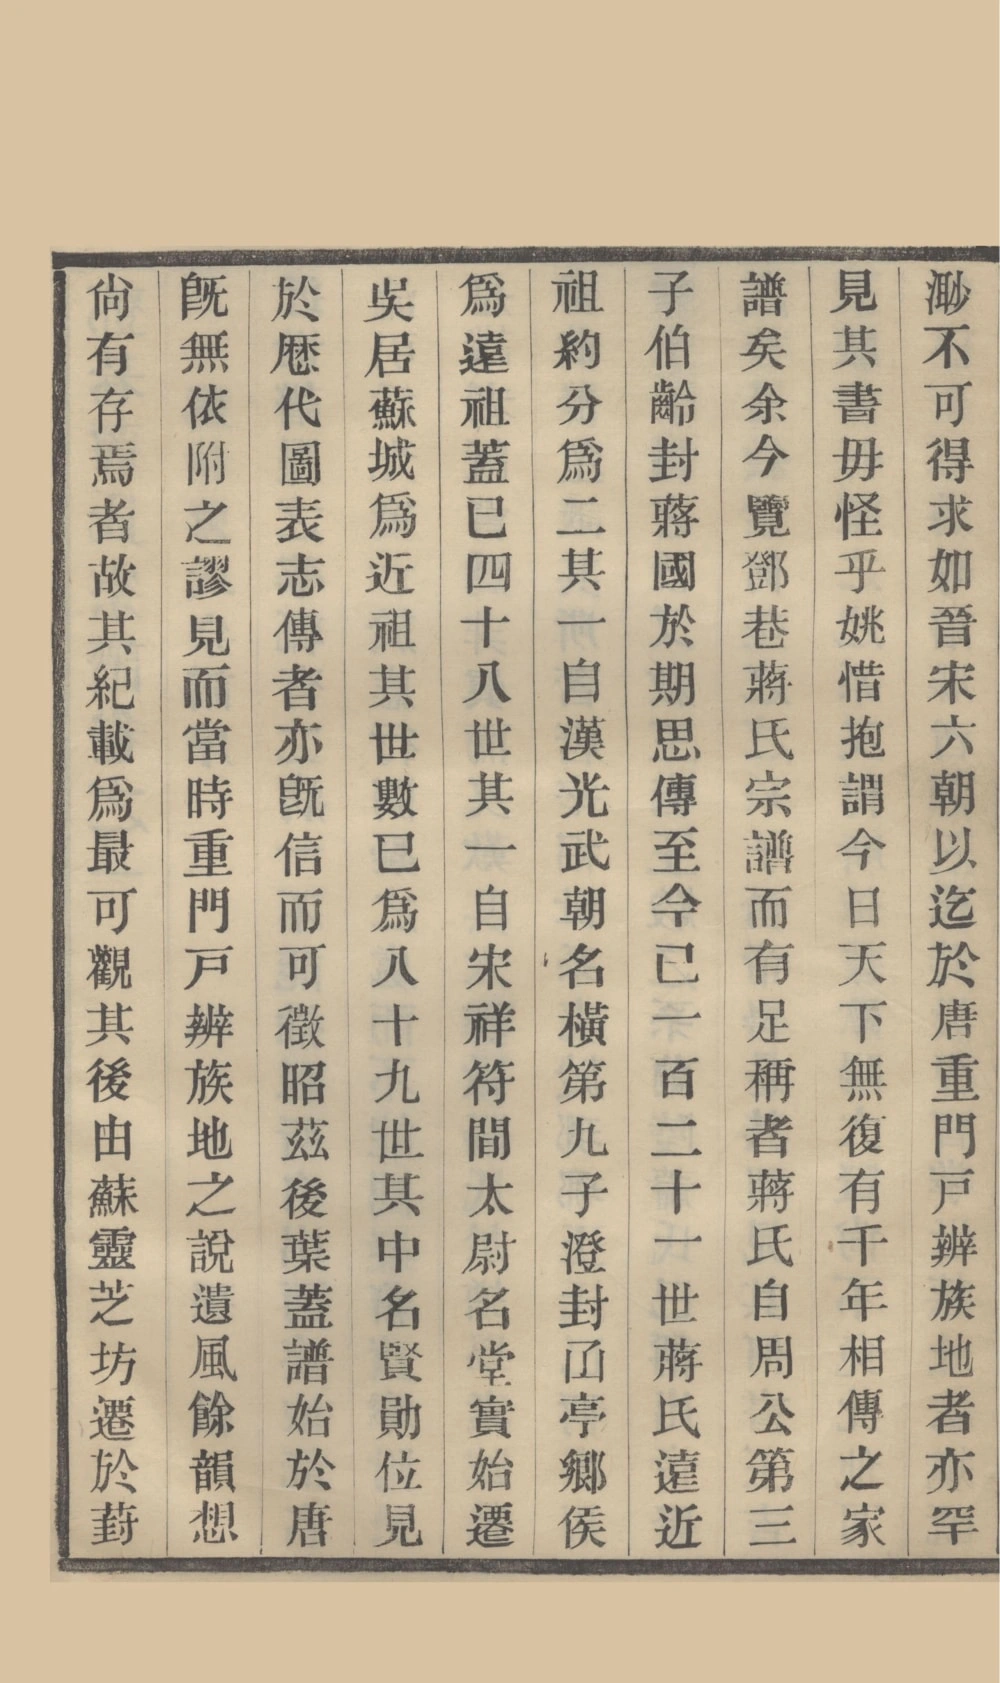 渺不可得求如晉宋六朝以迄於唐重門戸辨族地者亦罕
見其書毋怪乎姚惜抱謂今日天下無復有千年相傳之家
譜矣余今覽鄧巷蔣氏宗譜而有足稱者蔣氏自周公第三
子伯齡封蔣國於期思傳至今已一百二十一世蔣氏遠近
祖約分爲二其一自漢光武朝名橫第九子澄封㓙亭鄉侯
爲遠祖蓋已四十八世其一自宋祥符間太尉名堂實始遷
吳居蘇城爲近祖其世數已爲八十九世其中名賢勛位見
於歷代圖表志傳者亦旣信而可徵昭茲後葉蓋譜始於唐
旣無依附之謬見而當時重門戸辨族地之說遺風餘韻想
尙有存焉者故其紀載爲最可觀其後由蘇靈芝坊遷於葑